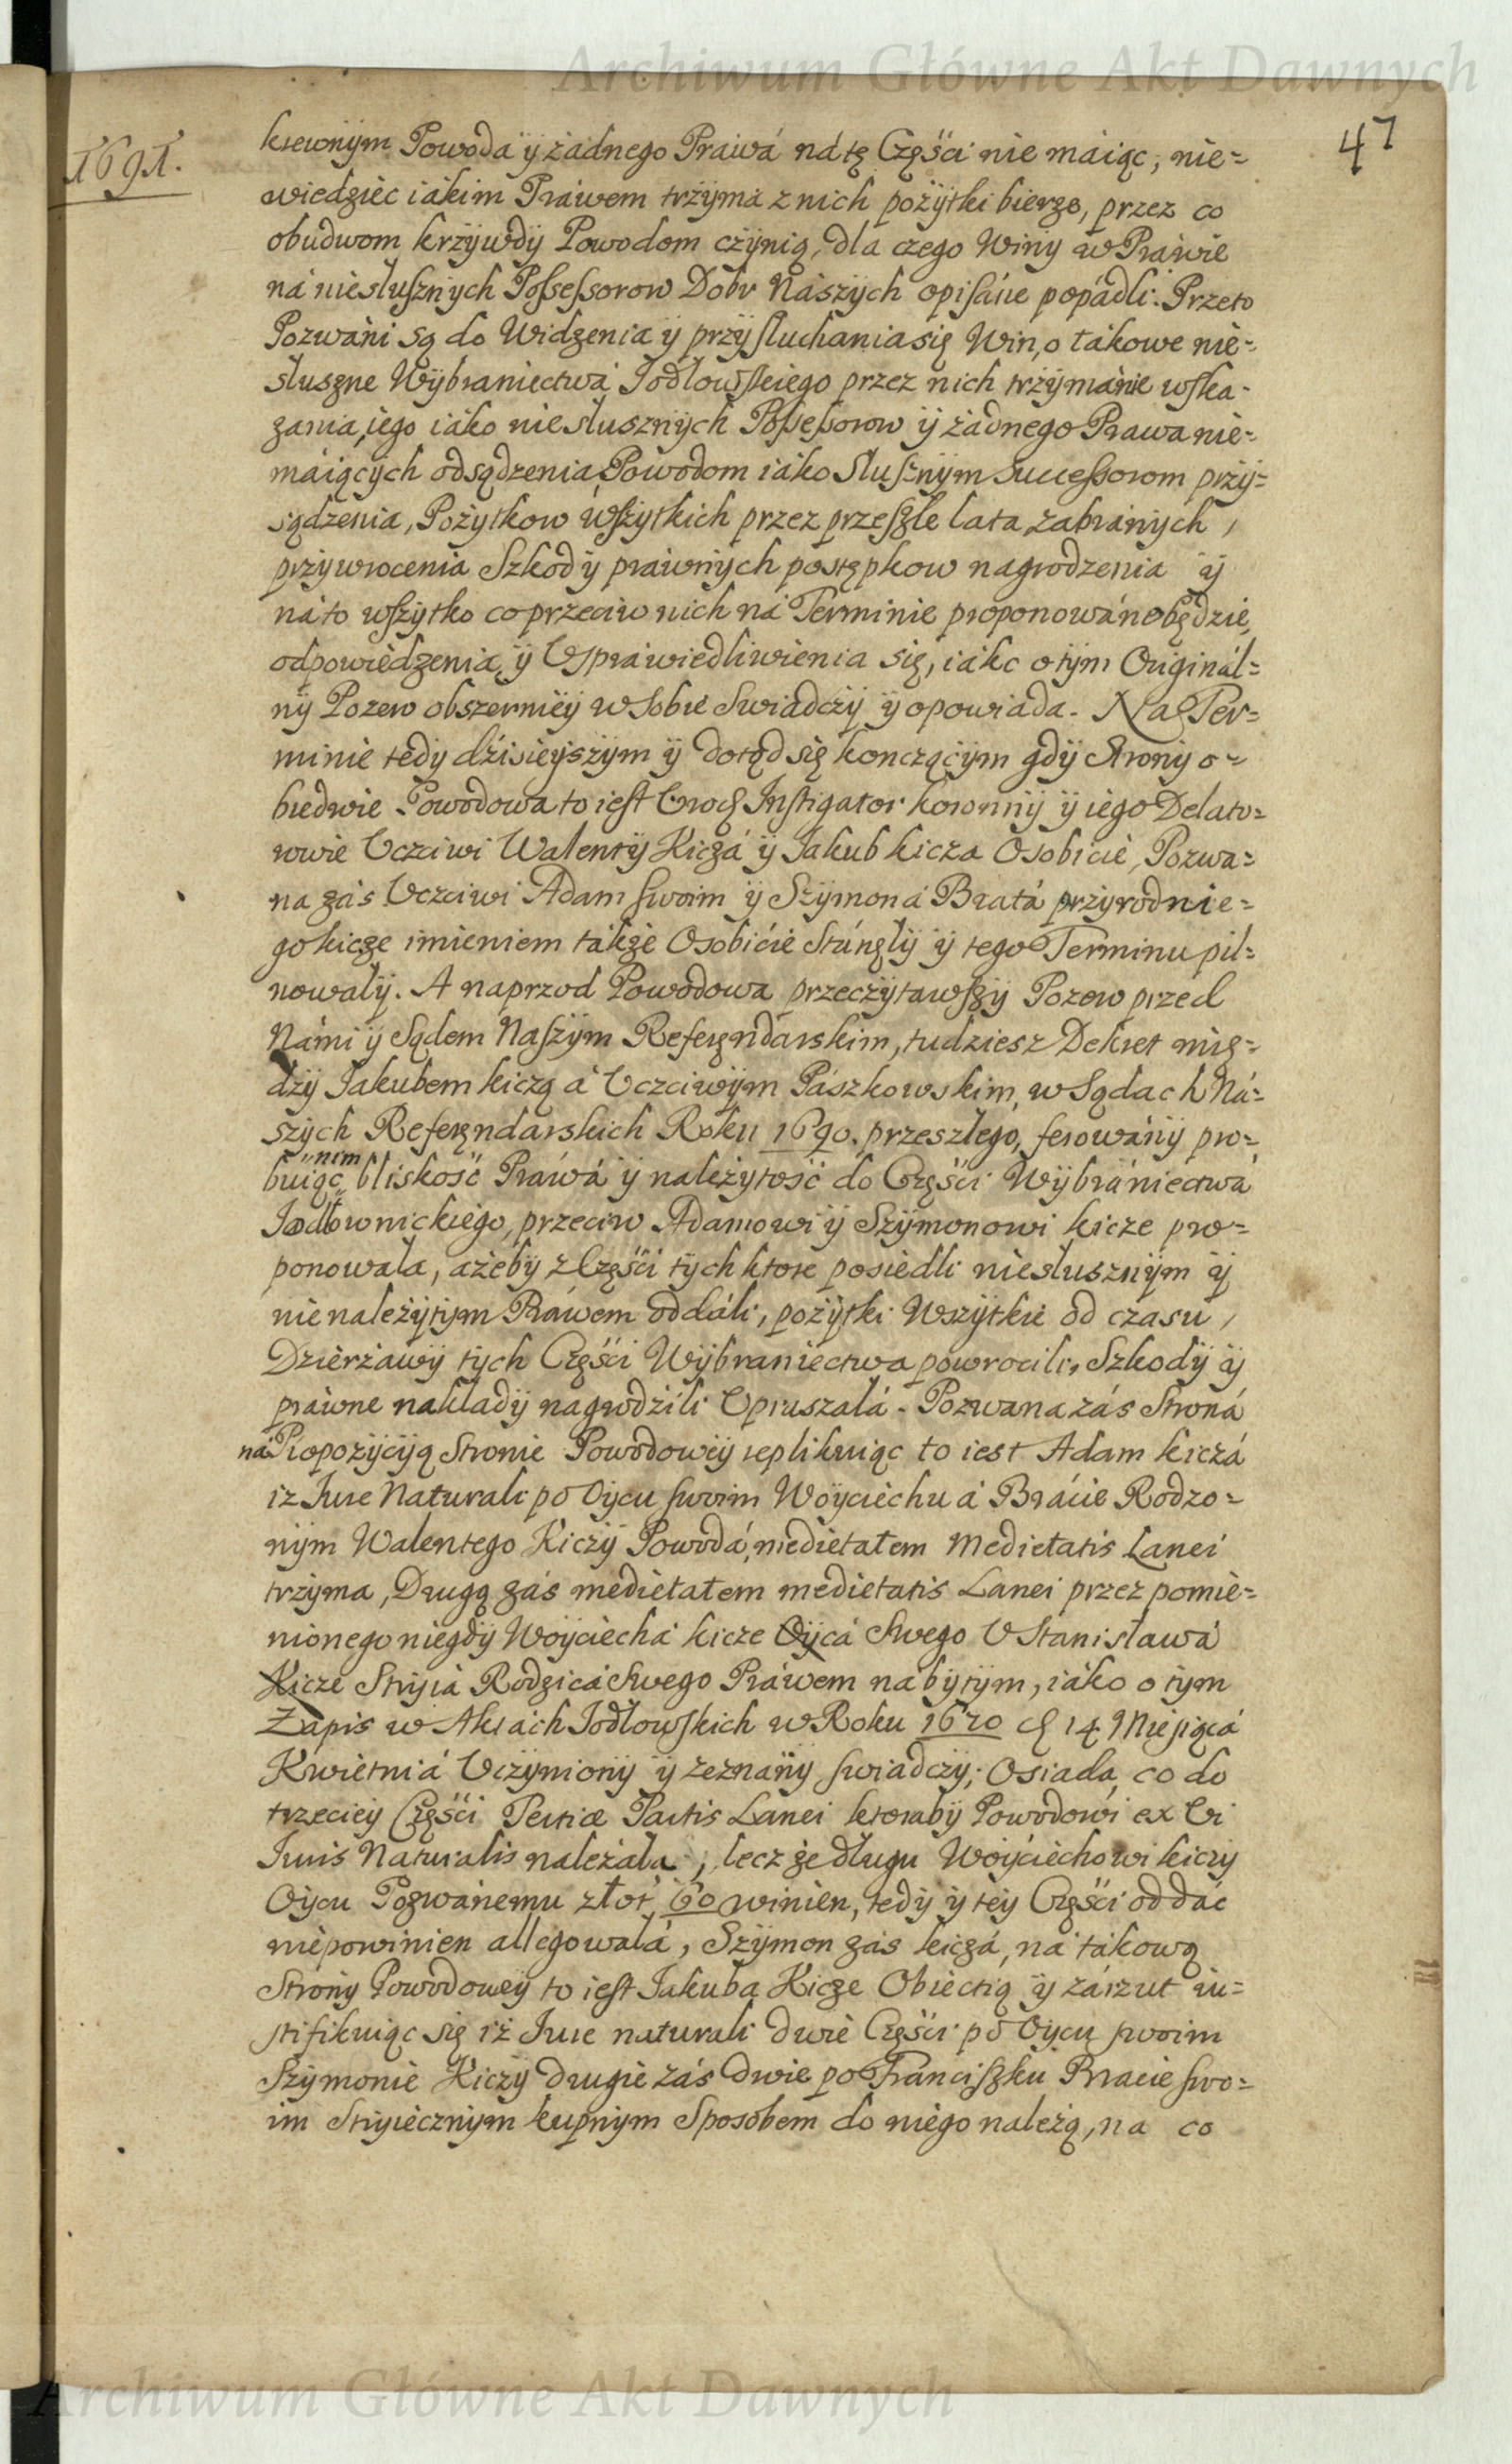 Archiwum Główne Akt Dawnych
47
1691.
krewnÿm Powoda ÿ żadnego Prawá ná tę Częśći nie máiąc, nie=
wiedzieć iákim Práwem trzÿma z nich pożÿtki bierze, przez co
obudwom krzÿwdÿ Powodom czÿnią, dla czego Winÿ w Práwie
ná niesłusznÿch Possessorow Dobr Nászÿch opisáne popádli. Przeto
Pozwáni są do Widzenia ÿ przÿsłuchania się Win, o tákowe nie=
słuszne Wÿbraniectwá Jodłowskiego przez nich trzÿmánie wska=
zania, iego iáko niesłusznÿch Possessorow ÿ żádnego Prawa nie=
máiącÿch odsądzenia, Powodom iáko Słusznÿm Successorom przÿ=
sądzenia, Pożÿtkow wszÿtkich przez przeszłe lata zabránÿch,
przÿwrocenia Szkodÿ prawnÿch postępkow nagrodzenia ÿ
ná to wszÿtko co przeciw nich ná Terminie proponowáno będzie,
odpowiedzenia, ÿ Vsprawiedliwienia się, iáko o tÿm Originál=
nÿ Pozew obszerniëÿ w sobie Swiadczÿ ÿ opowiáda. Na Ter=
minie tedÿ dźisieÿszÿm ÿ dotąd się kończącÿm gdÿ Stronÿ o=
biedwie Powodowa to iest Vrodz Instigator koronnÿ ÿ iego Delato=
rowie Vczciwi Walentÿ Kiczá ÿ Jakub kicza Osobiście, Pozwa=
na záś Vczciwi Adam swoim ÿ Szÿmoná Bratá przÿrodnie=
go kicze imieniem tákże Osobiście Stánęlÿ ÿ tego Terminu pil=
nowalÿ. A naprzod Powodowa przeczÿtawszÿ Pozew przed
Námi ÿ Sądem Naszÿm Referendarskim, tudziesz Dekret mię=
dzÿ Jakubem kiczą á Vczciwÿm Pászkowskim, w Sądach Ná=
szÿch Referendarskich Roku 1690. przeszłego, ferowánÿ pro=
buiąc nim bliskość Práwá ÿ należÿtość do Częśći Wÿbrániectwá
Jodłownickiego, przeciw Adamowi ÿ Szÿmonowi kicze pro=
ponowała, ażebÿ z Częśći tÿch ktore posiedli niesłusznÿm ÿ
nienależÿtÿm Práwem oddáli, pożÿtki Wszÿtkie od czasu,
Dzierżawÿ tÿch Częśći Wÿbraniectwa powrocili, Szkodÿ ÿ
práwne nakładÿ nagrodźili Vpraszałá. Pozwana záś Stroná
ná Propozÿcÿą Stronie Powodowëÿ replikuiąc to iest Adam kiczá
iż Jure Naturali po Oÿcu swoim Woÿciechu á Bráćie Rodzo=
nÿm Walentego Kiczÿ Powodá, medietatem Medietatis Lanei
trzÿma, Drugą záś medietatem medietatis Lanei przez pomie=
nionego niegdÿ Woÿciechá kicze Oÿcá Swego V Stanisławá
Kicze Strÿiá Rodzicá Swego Práwem nabÿtÿm, iáko o tÿm
Zapis w Aktach Jodłowskich w Roku 1670 d 14 Miesiącá
Kwietniá Vczÿnionÿ ÿ zeznánÿ swiadczÿ, Osiada, co do
trzeciëÿ Częśći Tertiæ Partis Lanei ktorabÿ Powodowi ex Vi
Juris Naturalis należała, lecz że długu Woÿćiechowi kiczÿ
Oÿcu Pozwánemu złot. 60 winien, tedÿ ÿ tëÿ Częśći oddáć
niepowinien allegowałá, Szÿmon záś kiczá, ná tákową
Stronÿ Powodowëÿ to iest Jakuba Kicze Obiectią ÿ zárzut iu=
stifikuiąc się iż Jure naturali dwie Częśći po Oÿcu swoim
Szÿmonie Kiczÿ drugie záś dwie po Franciszku Bracie swo=
im Strÿiecznÿm kupnÿm Sposobem do niego należą, na co
Archiwum Główne Akt Dawnych